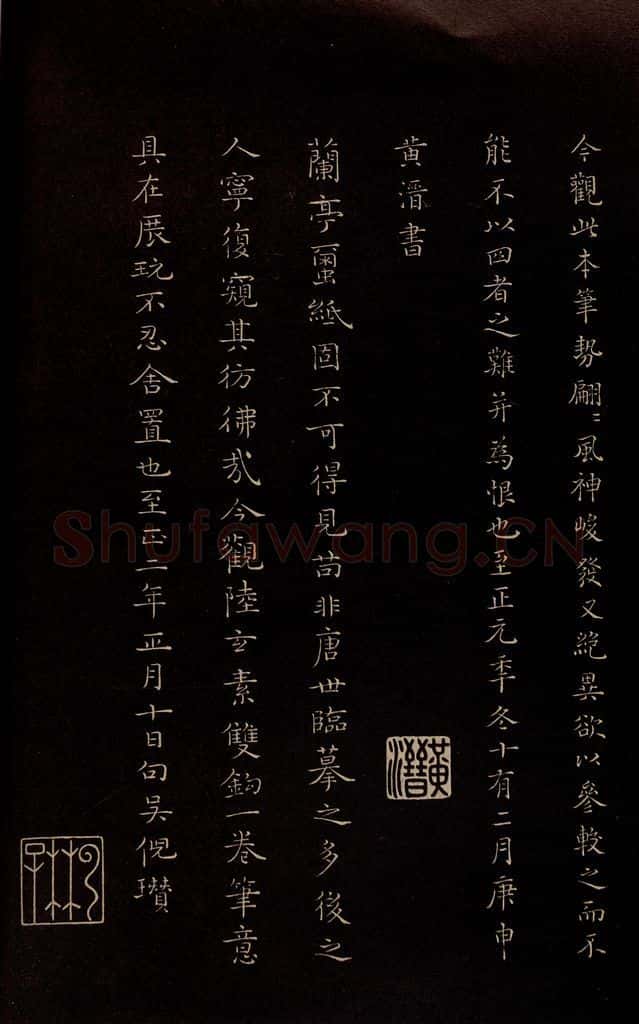 今觀此本筆勢翩〻風神峻發又絕異欲以參較之而不
能不以四者之難并為恨也至正元季冬十有二月庚申
黃溍書
蘭亭蠒紙固不可得見苟非唐世臨摹之多後之
人寧復窺其彷彿哉今觀陸玄素雙鉤一卷筆意
具在展玩不忍舍置也至正二年正月十日句吳倪瓚
黃溍
Shufawang.CN